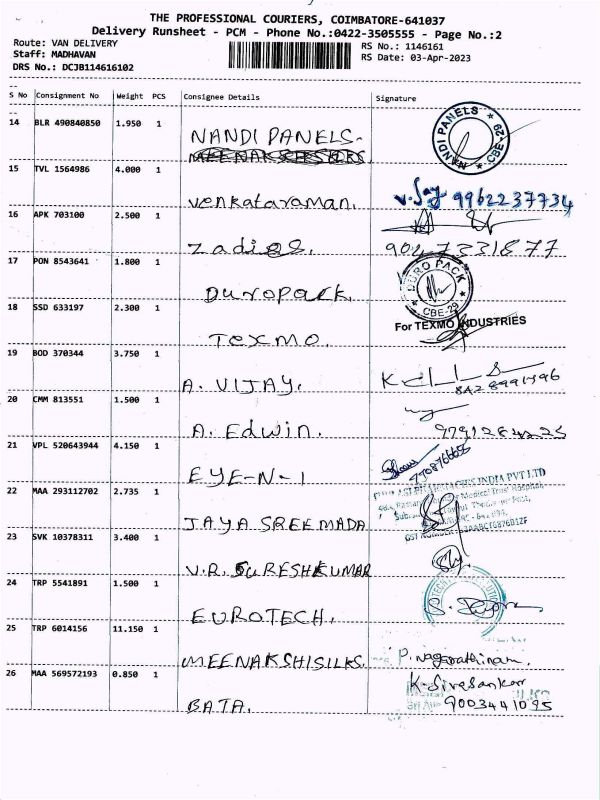 THE PROFESSIONAL COURIERS, COIMBATORE-641037
Delivery Runsheet - PCM - Phone No.:0422-3505555 - Page No.:2
Route: VAN DELIVERY RS No.: 1146161
Staff: MADHAVAN RS Date: 03-Apr-2023
DRS No.: DCJB114616102
S No Consignment No Weight PCS Consignee Details Signature
14 BLR 490840850 1.950 1 NANDI PANELS. NANDI PANELS CBE-29
15 TVL 1564986 4.000 1 Venkataraman. 9962237734
16 APK 703100 2.500 1 Zadios. 9047331877
17 PON 8543641 1.800 1 Duropack. DURO PACK CBE-29
18 SSD 633197 2.300 1 Texmo. For TEXMO INDUSTRIES
19 BOD 370344 3.750 1 A. VIJAY.
20 CMM 813551 1.500 1 A. Edwin.
21 VPL 520643944 4.150 1 EYE-N-1
22 MAA 293112702 2.735 1 JAYA SREE MADA INDIA PVT LTD
23 SVK 10378311 3.400 1 V.R. SURESHKUMAR
24 TRP 5541891 1.500 1 EUROTECH.
25 TRP 6014156 11.150 1 MEENAKSHISILKS. P. Nagarathinam.
26 MAA 569572193 0.850 1 BATA. K-Sivasankar
9003441095